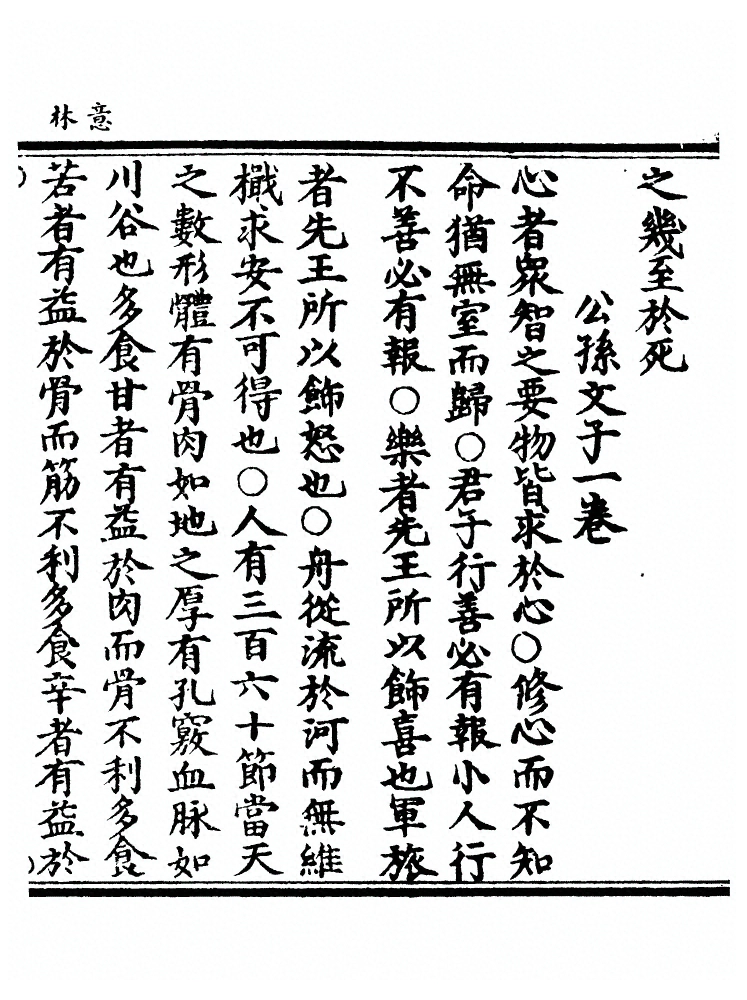 意林
之幾至於死
公孫文子一卷
心者衆智之要物皆求於心○修心而不知
命猶無室而歸○君子行善必有報小人行
不善必有報○樂者先王所以飾喜也軍旅
者先王所以飾怒也○舟從流於河而無維
檝求安不可得也○人有三百六十節當天
之數形體有骨肉如地之厚有孔竅血脉如
川谷也多食甘者有益於肉而骨不利多食
苦者有益於骨而筋不利多食辛者有益於